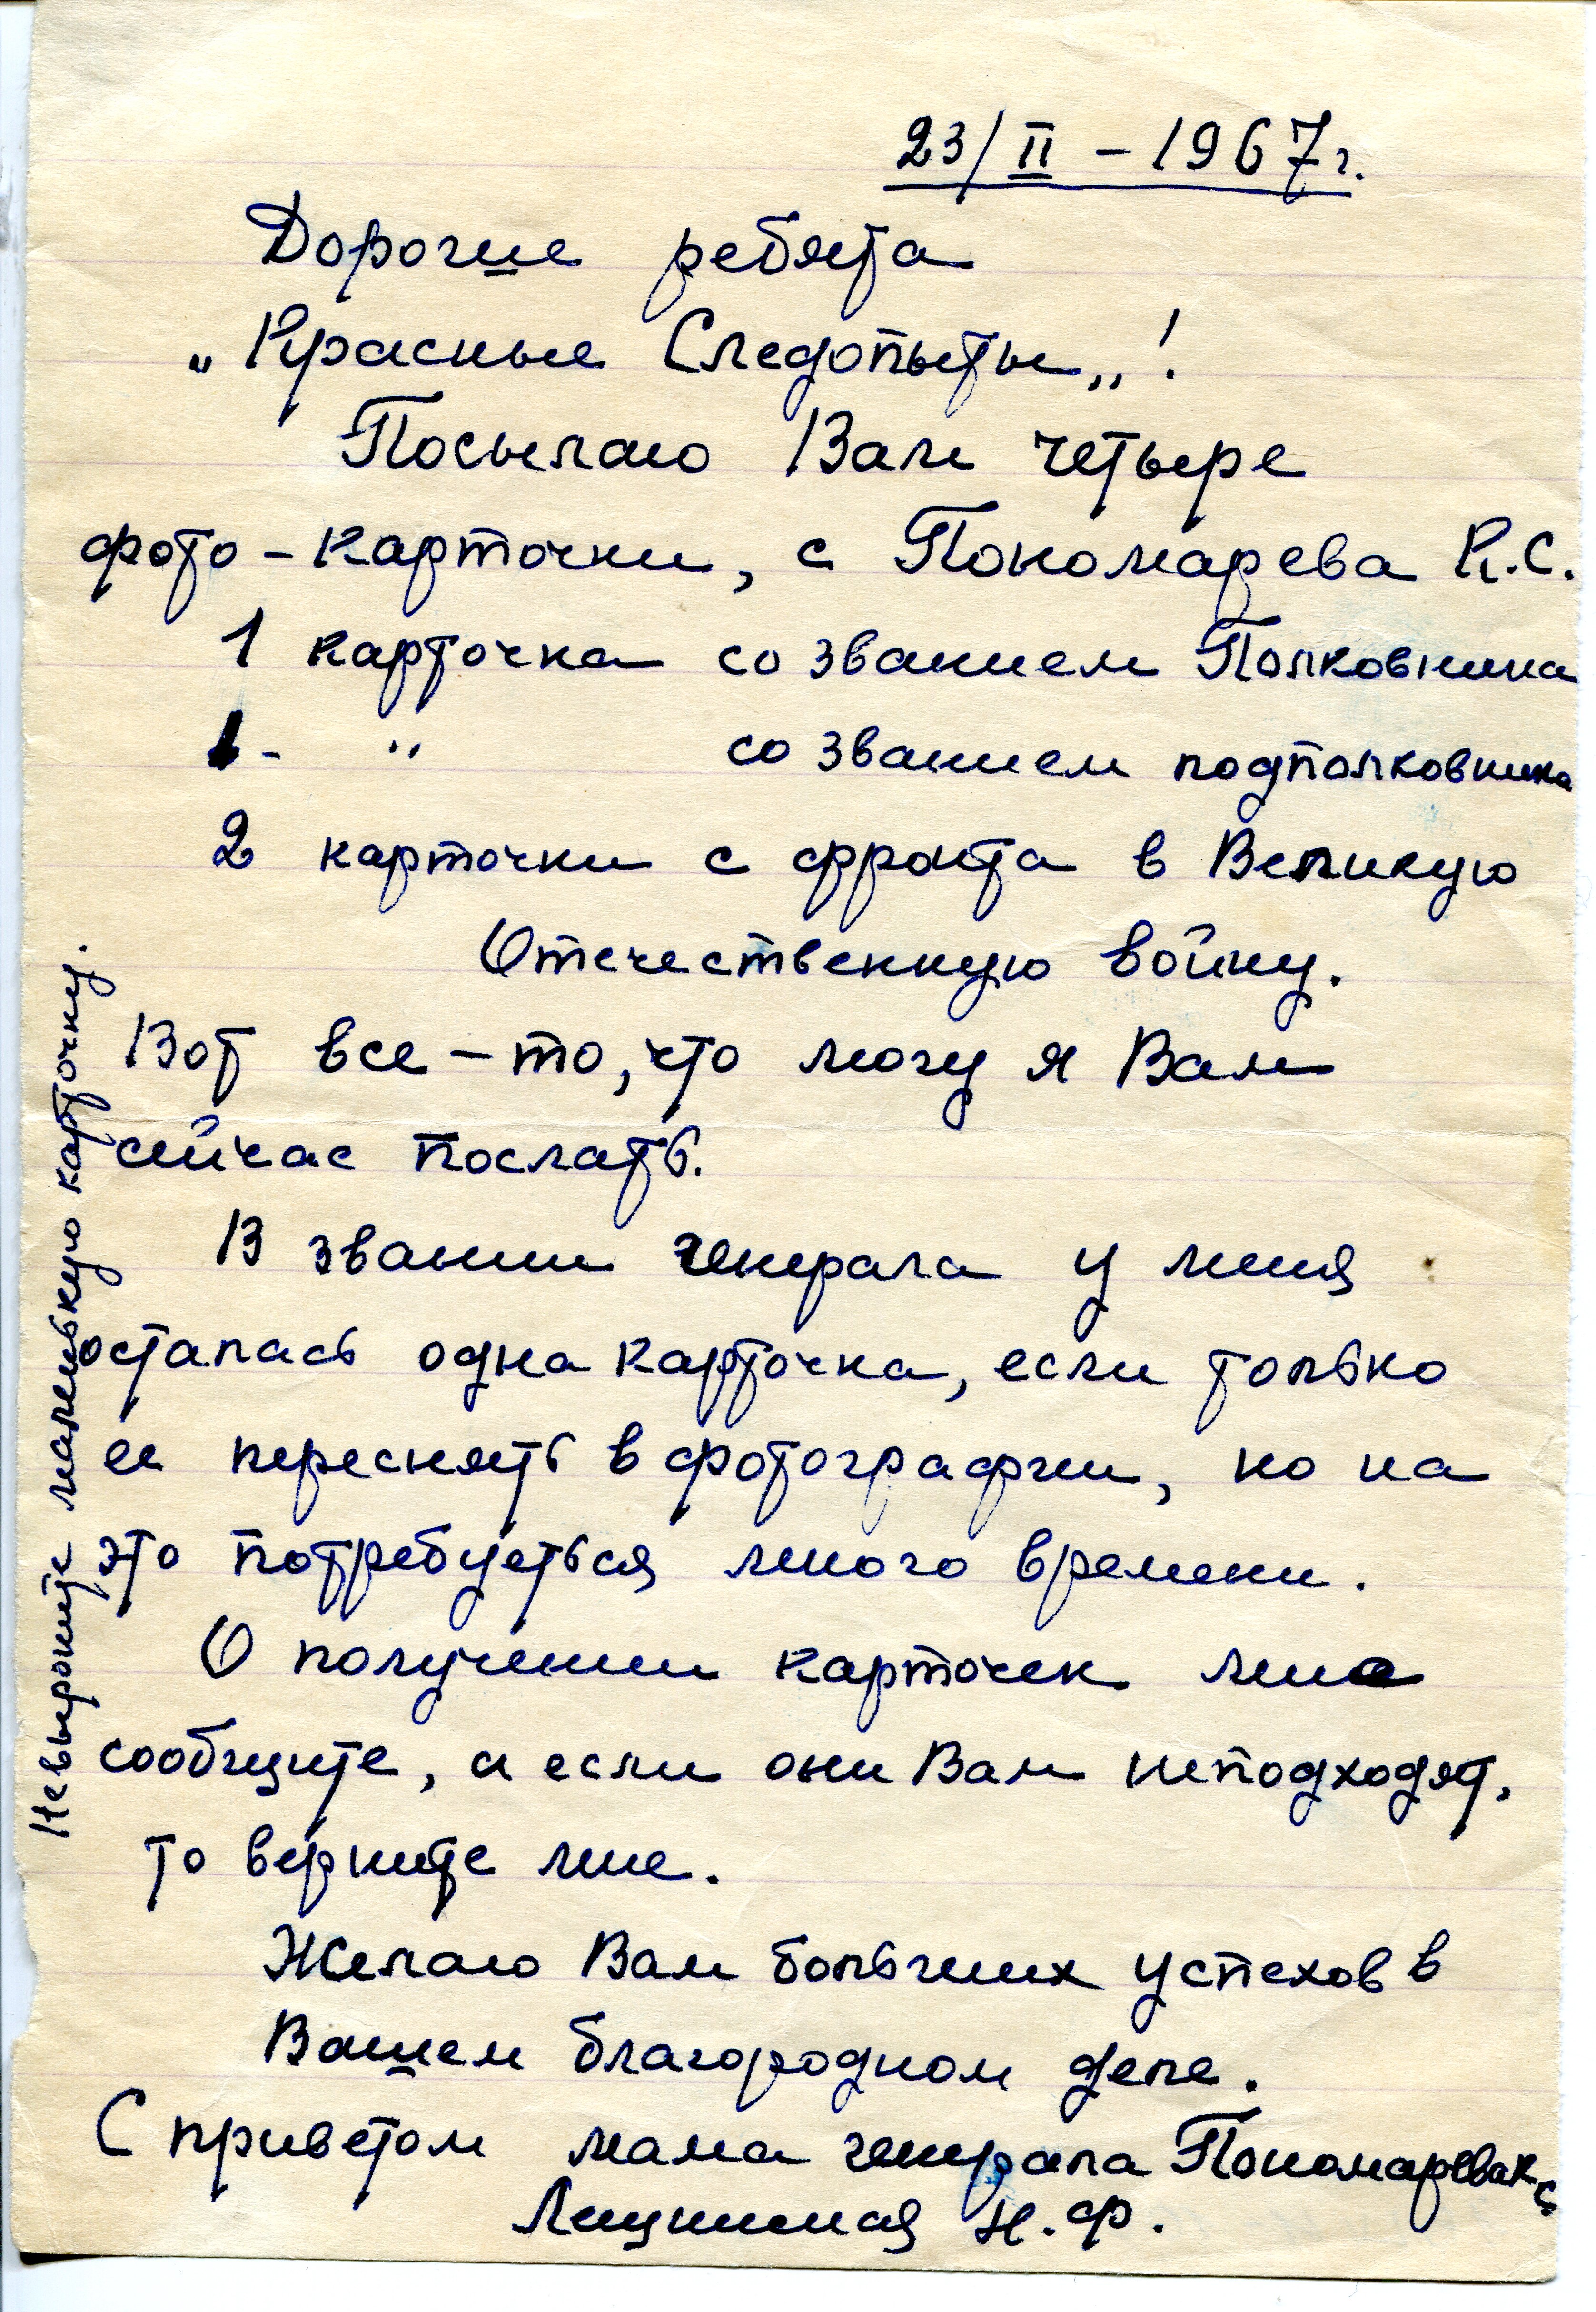 23/II – 1967 г.
Дорогие ребята
„Красные Следопыты„!
Посылаю Вам четыре
фото – карточки, с Пономарева К.С.
1 карточка со званием Полковника
1 - " со званием подполковника
2 карточки с фронта в Великую
Отечественную войну.
Вот все – то, что могу я Вам
сейчас послать.
В звании генерала у меня
осталась одна карточка, если только
ее переснять в фотографии, но на
это потребуеться много времени.
О получении карточек мне
сообщите, а если они Вам неподходят,
то верните мне.
Желаю Вам больших успехов в
Вашем благородном деле.
С приветом мама генерала Пономарева К С
Н. Ф.
Невыроните маленькую карточку.